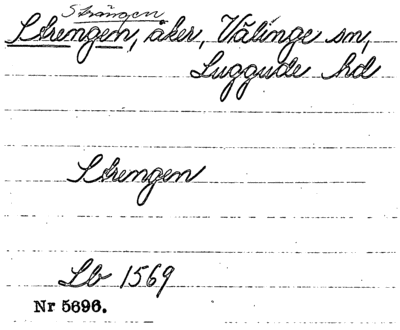 Strängen
Strengen, åker, Välinge sn,
Luggude hd
Strengen
Lb 1569
Nr 5696.